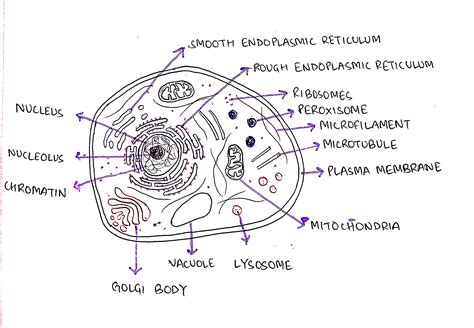 SMOOTH ENDOPLASMIC RETICULUM
ROUGH ENDOPLASMIC RETICULUM
RIBOSOMES
PEROXISOME
MICROFILAMENT
MICROTUBULE
PLASMA MEMBRANE
MITOCHONDRIA
LYSOSOME
VACUOLE
GOLGI BODY
CHROMATIN
NUCLEOLUS
NUCLEUS